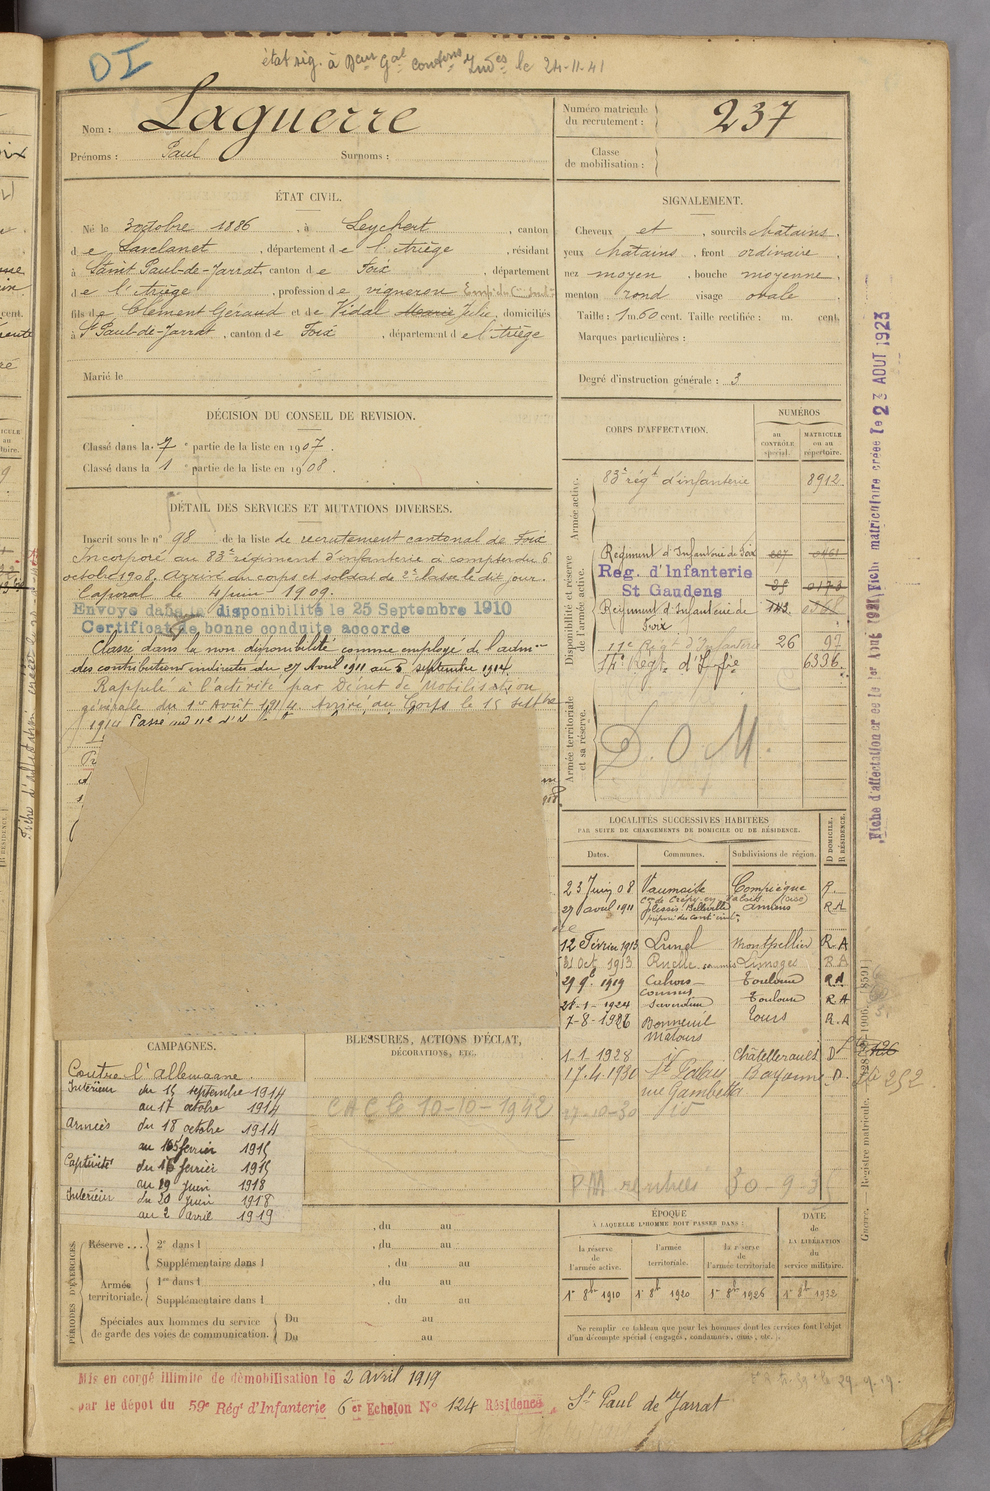 DI
état sig. à Don Gal le 24-11-41
Nom : Laguerre
Prénoms : Paul Surnoms :
Numéro matricule du recrutement : 237
Classe de mobilisation :
ÉTAT CIVIL.
Né le 3 octobre 1886, à Leychert, canton
de Lavelanet, département de l'Ariège, résidant
à Saint Paul-de-Jarrat, canton de Foix, département
de l'Ariège, profession de vigneron
fils de Clément Géraud et de Vidal Marie Julie, domiciliés
à St Paul-de-Jarrat, canton de Foix, département de l'Ariège
Marié le
SIGNALEMENT.
Cheveux et, sourcils chatains.
yeux chatains, front ordinaire
nez moyen, bouche moyenne
menton rond visage ovale
Taille : 1 m. 60 cent. Taille rectifiée : m. cent.
Marques particulières :
Degré d'instruction générale : 3
DÉCISION DU CONSEIL DE REVISION.
Classé dans la 7e partie de la liste en 1907.
Classé dans la 1 e partie de la liste en 1908.
DÉTAIL DES SERVICES ET MUTATIONS DIVERSES.
Inscrit sous le n° 98 de la liste de recrutement cantonal de Foix
Incorporé au 83e régiment d'infanterie à compter du 6
octobre 1908. Arrivé au corps et soldat de 2e classe le dit jour.
Caporal le 4 juin 1909.
Envoyé dans la disponibilité le 25 Septembre 1910
Certificat de bonne conduite accordé
Classé dans la non disponibilité comme employé de l'admon
des contributions indirectes du 27 Avril 1911 au 5 septembre 1914.
Rappelé à l'activité par Décret de Mobilisation
générale du 1er Août 1914. Arrivé au Corps le 15 septbre
1914
CORPS D'AFFECTATION.
NUMÉROS
au CONTRÔLE spécial.
MATRICULE ou au répertoire.
Armée active.
83e régt d'infanterie 8912
Disponibilité et réserve de l'armée active.
Régiment d'Infanterie de Foix
Reg. d'Infanterie
St Gaudens
Régiment d'Infanterie de Foix
11e Régt d'Infanterie 26 97
14e Régt d'Inf. 6336
Armée territoriale et sa réserve.
D.O.M.
Fiche d'affectation créée le 1er Août 1921 Fiche matriculaire créée le 23 AOUT 1923
LOCALITÉS SUCCESSIVES HABITÉES
PAR SUITE DE CHANGEMENTS DE DOMICILE OU DE RÉSIDENCE.
Dates. Communes. Subdivisions de région. D DOMICILE. R RÉSIDENCE.
23 Juin 08 Vaumoise Compiègne R.
27 avril 1911 Plessis Belleville Amiens R A
12 Février 1913 Lunel Montpellier R.A
31 Oct. 1913 Ruelle Limoges R A
29 9bre 1919 Cahors Toulouse R A
28-1-1924 Toulouse R A
7-8-1926 Bonneuil Matours Tours R.A
1-1-1928 id Châtellerault D
17.4.1930 St Palais Bayonne D.
rue Gambetta
27-10-30 id
PM rentrées 30-9-35
CAMPAGNES.
Contre l'Allemagne.
Intérieur du 15 septembre 1914
au 17 octobre 1914
Armées du 18 octobre 1914
au 15 février 1915
Captivité du 16 février 1915
au 29 juin 1918
Intérieur du 30 juin 1918
au 2 avril 1919
BLESSURES, ACTIONS D'ÉCLAT,
DÉCORATIONS, ETC.
CAC le 10-10-1942
PÉRIODES D'EXERCICES.
Réserve ... 2e dans l , du au
Supplémentaire dans l , du au
Armée territoriale. 1re dans l , du au
Supplémentaire dans l , du au
Spéciales aux hommes du service de garde des voies de communication. Du au
Du au
ÉPOQUE
À LAQUELLE L'HOMME DOIT PASSER DANS :
la réserve de l'armée active. l'armée territoriale. la réserve de l'armée territoriale
DATE de LA LIBÉRATION du service militaire.
1er 8bre 1910 1er 8bre 1920 1er 8bre 1926 1er 8bre 1932
Ne remplir ce tableau que pour les hommes dont les services font l'objet
d'un décompte spécial (engagés, condamnés, omis, etc.).
Guerre. — Registre matricule.
Mis en congé illimité de démobilisation le 2 avril 1919
par le dépôt du 59e Régt d'Infanterie 6er Echelon N° 124 Résidence St Paul de Jarrat